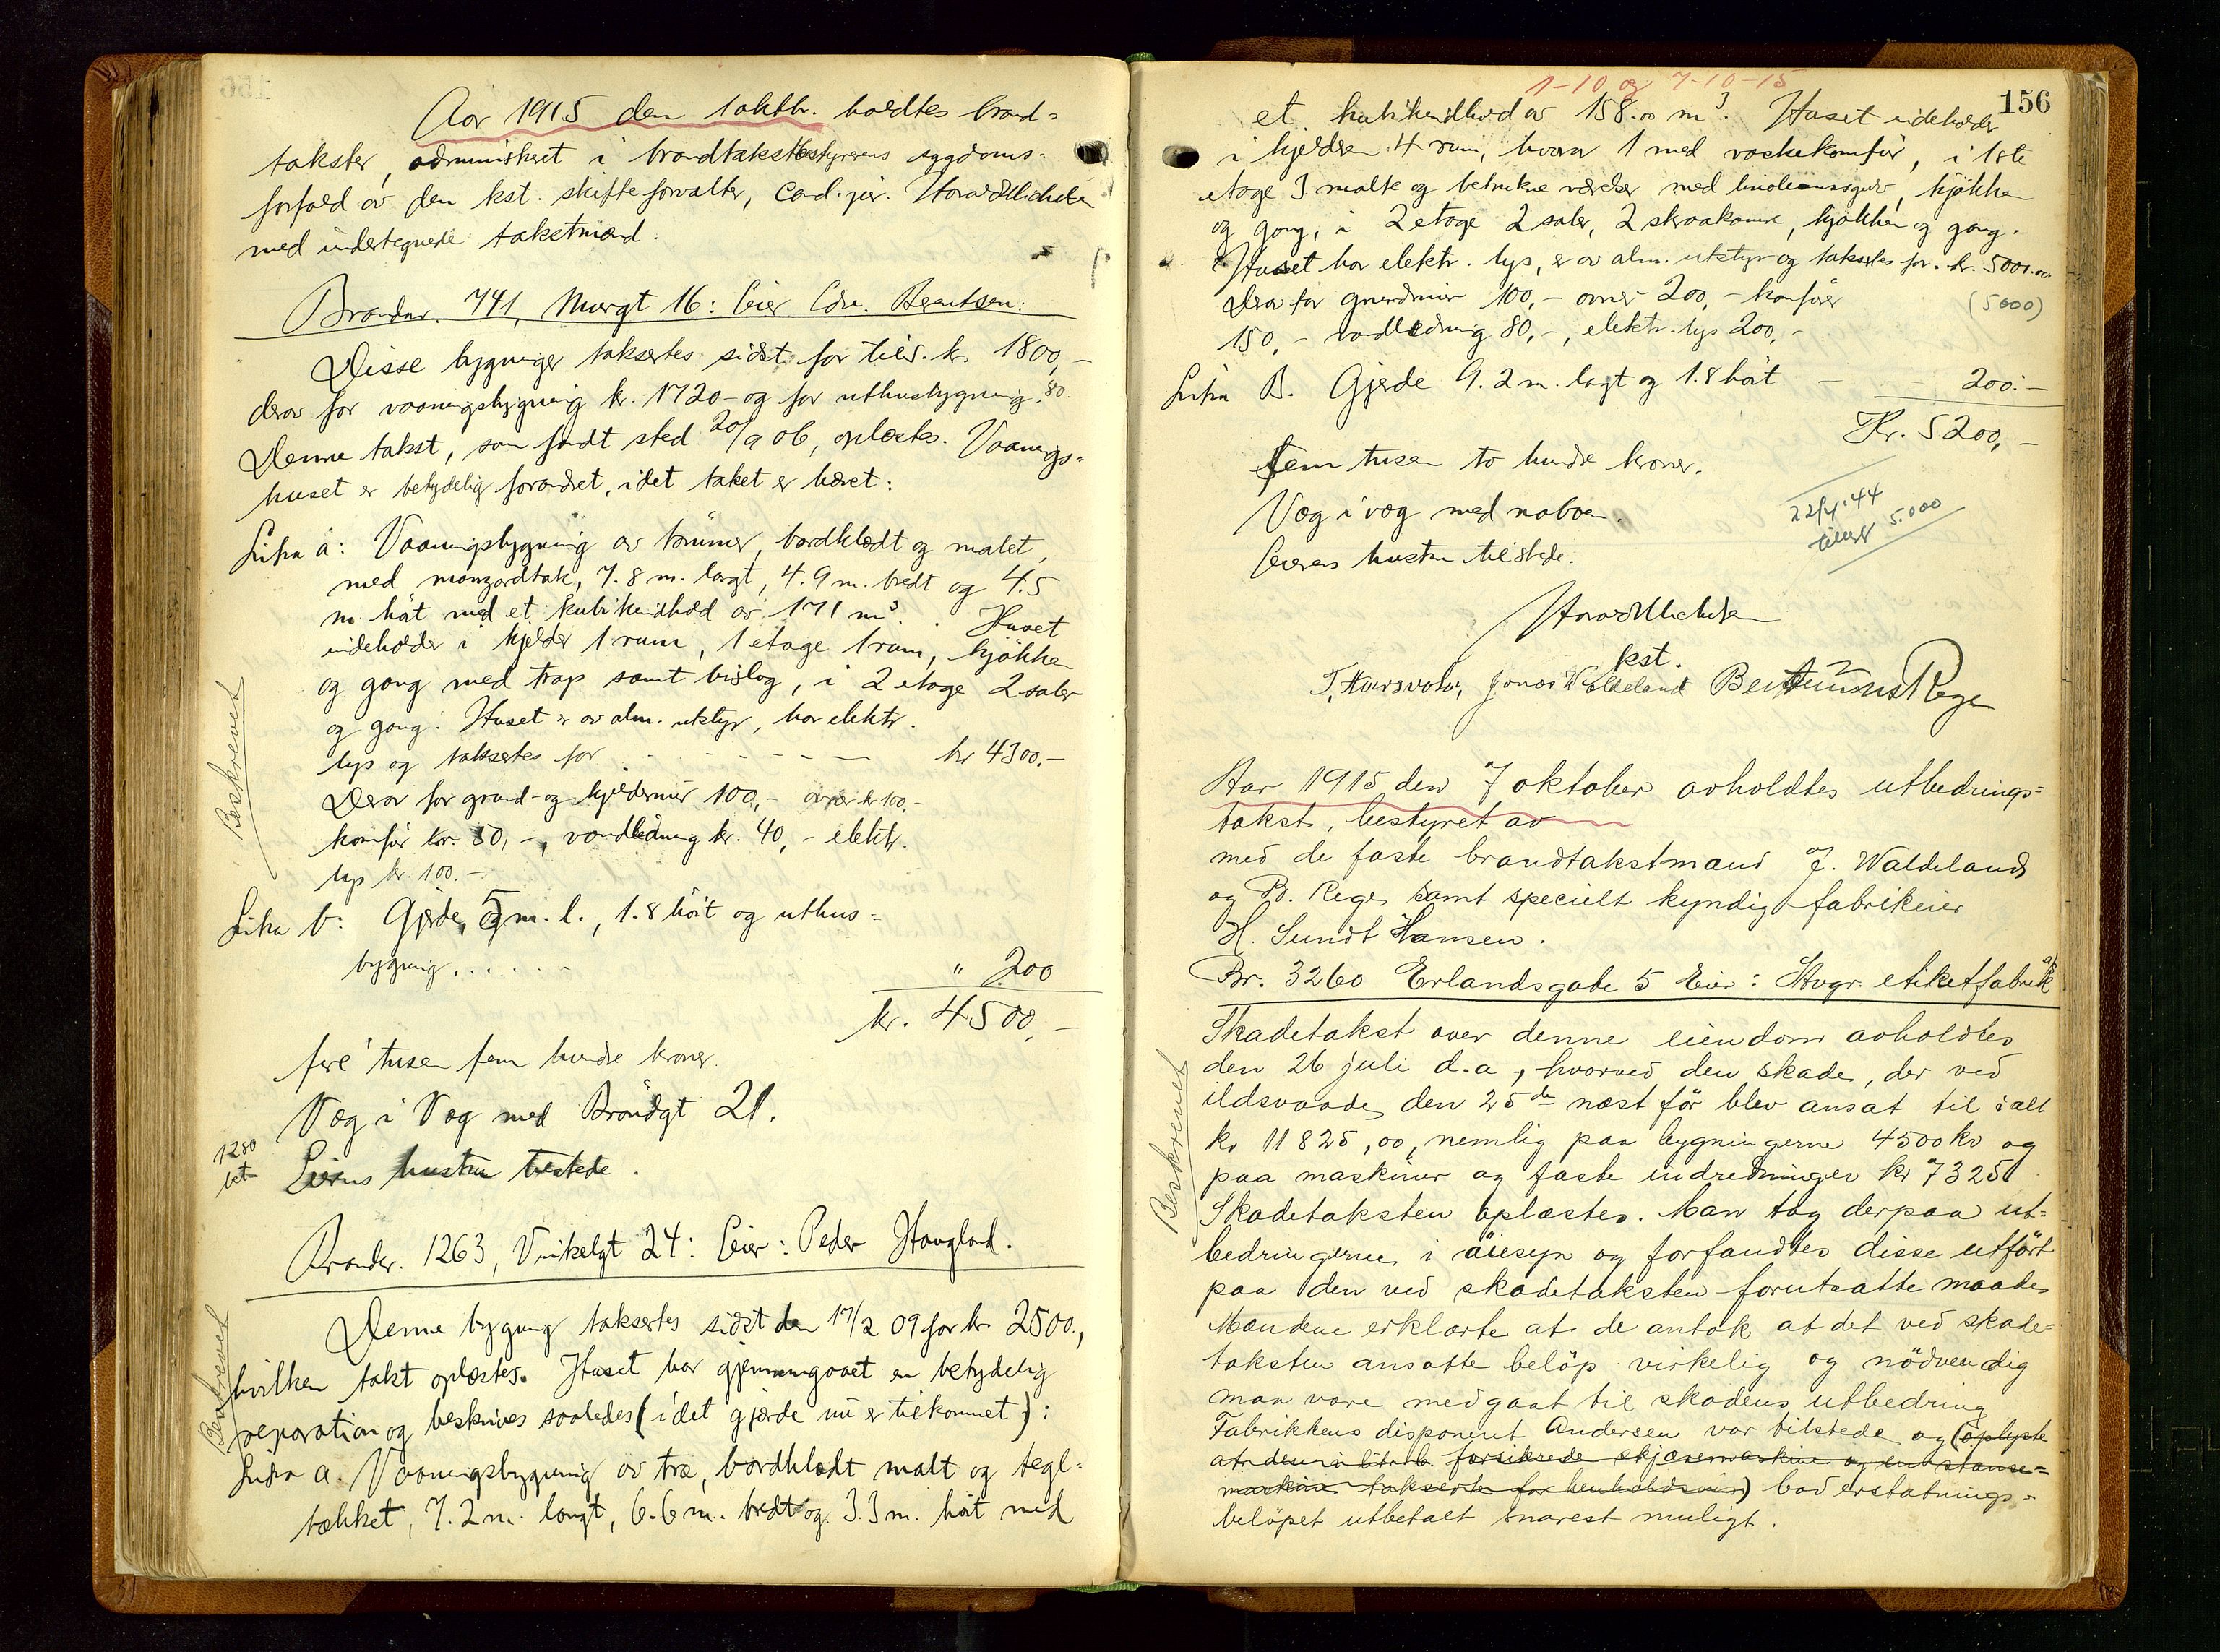 Aar 1915 den 1 oktbr. holdtes brand=
takster, administreret i brandtakstbestyrerens sygdoms-
forfald av den kst. skifteforvalter, cand. jur.
med undertegnede takstmænd.
Brandnr. 741, Murgt 16: Eier Edv. Berentsen:
Disse bygninger taksertes sidst for tils. kr. 1800,-
derav for vaaningsbygning kr. 1720- og for uthusbygning 80.
Denne takst, som fandt sted 20/9 06, oplæstes. Vaanings=
huset er betydelig forandret, idet taket er hævet:
Litra a: Vaaningsbygning av tømmer, bordklædt og malet,
med manzardtak, 7.8 m. langt, 4.9 m. bredt og 4.5
m. høit med et kubikindhold av 171 m³. Huset
indeholder i kjelder 1 rum, 1 etage 1 rum, kjøkken
og gang med trap samt bislag, i 2 etage 2 saler
og gang. Huset er av alm. utstyr, har elektr.
lys og taksertes for - - - - - - kr 4300.-
Derav for grund- og kjeldermur 100,- ovner kr 100,-
komfür kr. 50,-, vandledning kr. 40,- elektr.
lys kr. 100.-
Litra b: Gjerde, 5 m. l., 1.8 høit og uthus=
bygning, . . . . . " 200
kr. 4500,-
fire tusen fem hundre kroner.
Væg i Væg med Brøndgt 21.
1280
bet
Eierens hustru tilstede.
Brandnr. 1263, Vinkelgt 24: Eier: Peder Haugland.
Denne bygning taksertes sidst den 17/2 09 for kr. 2500.,
hvilken takst oplæstes. Huset har gjennemgaaet en betydelig
reparation og beskrives saaledes (idet gjerde nu er tilkommet):
Litra a. Vaaningsbygning av træ, bordklædt malt og tegl=
tækket, 7.2 m. langt, 6.6 m. bredt og 3.3 m. høit med
Beskrevet
Beskrevet
1-10 og 7-10-15
156
et kubikindhold av 158.00 m³. Huset indeholder
i kjelderen 4 rum, hvorav 1 med vaskekomfür, i 1ste
etage 3 malte og betrukne værelser med linoleumsgulv, kjøkken
og gang, i 2 etage 2 saler, 2 skraakamre, kjøkken og gang.
Huset har elektr. lys, er av alm. utstyr og taksertes for. kr. 5000.00
Derav for grundmur 100,- ovner 200,- komfürer (5000)
150,- vandledning 80,-, elektr. lys 200,-
Litra B. Gjerde 9.2 m. langt og 1.8 høit - 200.-
Kr. 5200,-
fem tusen to hundre kroner.
Væg i væg med naboen.
Eierens hustru tilstede.
22/4 '44
tillegg 5.000
kst.
Jonas Waldeland
Aar 1915 den 7 oktober avholdtes utbedrings=
takst, bestyret av
med de faste brandtakstmænd J. Waldeland
og B. Rege samt specielt kyndig fabrikeier
H. Sundt Hansen.
Br. 3260 Erlandsgade 5 Eier: Stvgr. etiketfabrik
Skadetakst over denne eiendom avholdtes
den 26 juli d.a., hvorved den skade, der ved
ildsvaade den 25de næst før blev ansat til ialt
kr 11825,00, nemlig paa bygningerne 4500 kr og
paa maskiner og faste indredninger kr 7325
Skadetaksten oplæstes. Man tog derpaa ut=
bedringerne i øiesyn og forfandtes disse utført
paa den ved skadetaksten forutsatte maade
Mændene erklærte at de antok at det ved skade=
taksten ansatte beløp virkelig og nødvendig
maa være medgaat til skadens utbedring
Fabrikkens disponent Andersen var tilstede og (oplyste
at den i litr. b. forsikrede skjæremaskine og en stanse=
maskine takserte for henholdsvis) bad erstatnings=
beløpet utbetalt snarest muligt.
Beskrevet